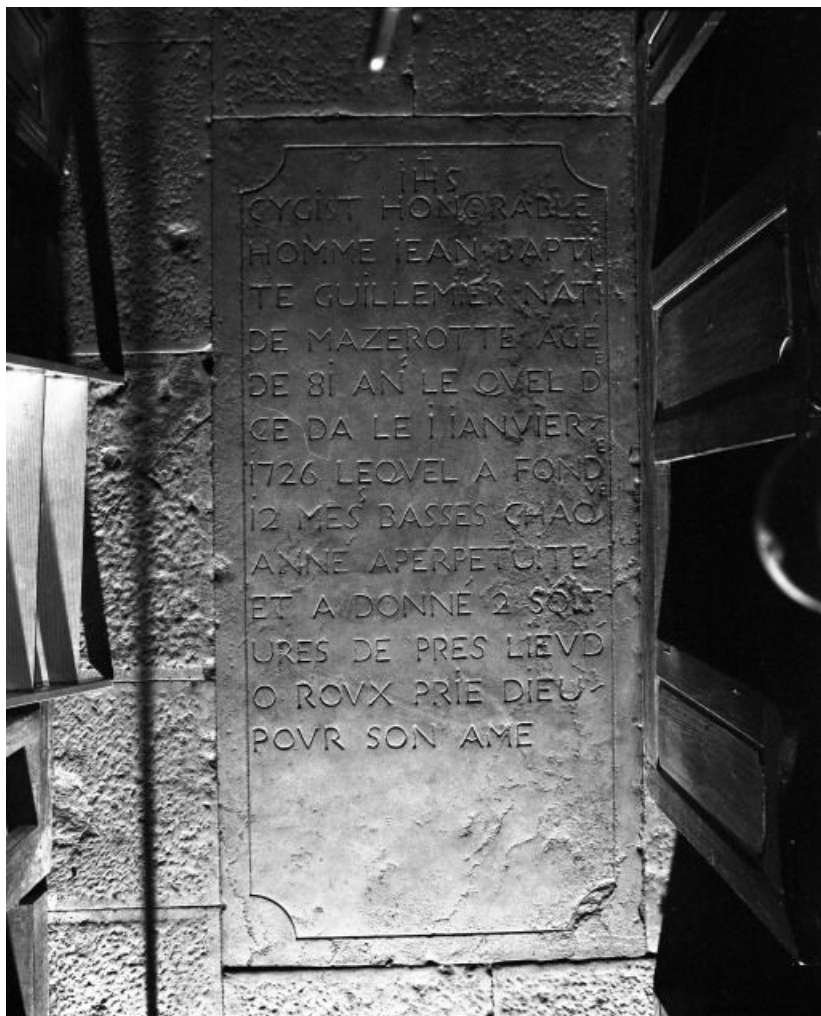 IHS
CYGIST HONORABLE
HOMME IEAN BAPTI
TE GUILLEMIER NATI
DE MAZEROTTE AGE
DE 81 ANS LE QVEL D
CE DA LE 1 IANVIER
1726 LEQVEL A FOND
12 MES BASSES CHAQ
ANNE APERPETUITE
ET A DONNÉ 2
URES DE PRES LIEVD
O ROVX PRIE DIEU
POVR SON AME